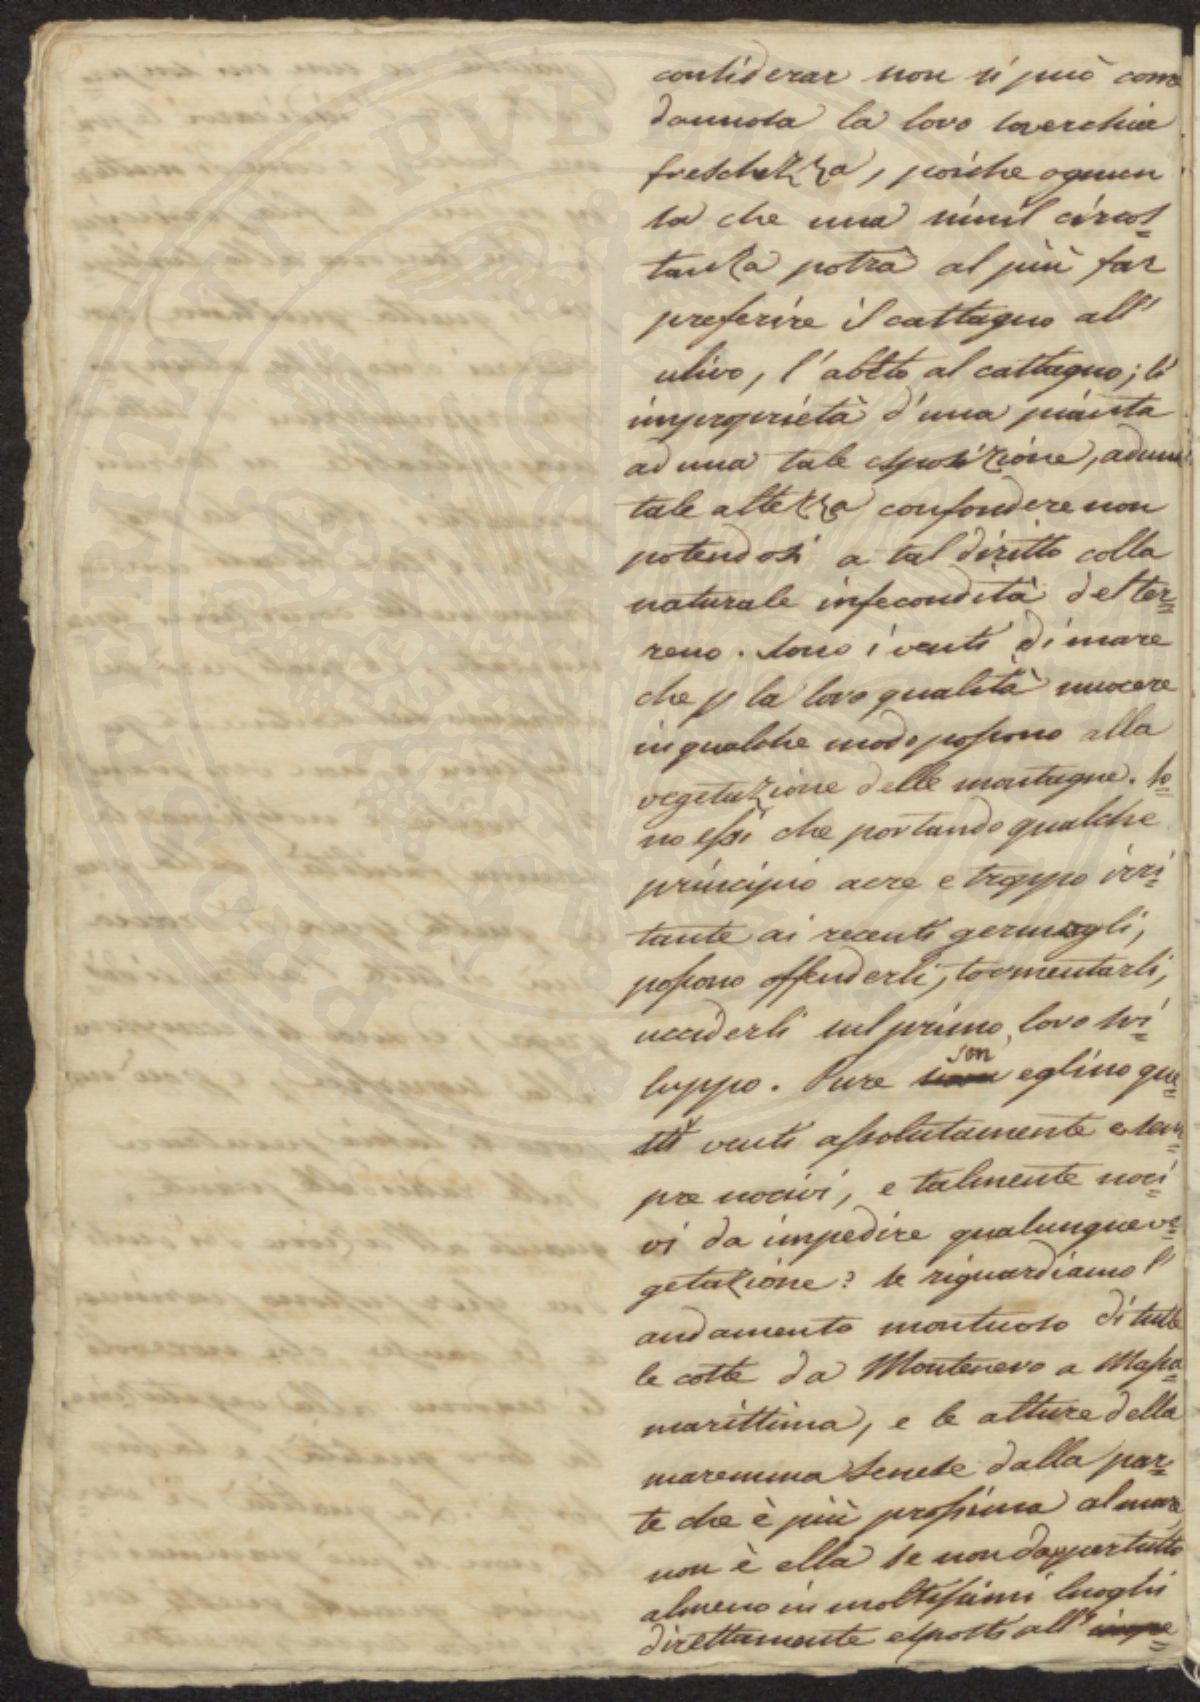 considerar non si può come
dannosa la loro soverchia
freschezza, poiche ognun
sa che una simil circos=
tanza potrà al più far
preferire il castagno all'
ulivo, l'abeto al castagno; l'
improprietà d'una pianta
ad una tale esposizione, ad una
tale altezza confondere non
potendosi a tal diritto colla
naturale infecondità del ter=
reno. Sono i venti di mare
che p la loro qualità nuocere
in qualche modo possono alla
vegetazione delle montagne. So=
no essi che portando qualche
principio acre e troppo irri=
tante ai recenti germogli,
possono offenderli, tormentarli,
ucciderli sul primo loro svi=
luppo. Pure son eglino que=
sti venti assolutamente e sem=
pre nocivi, e talmente noci=
vi da impedire qualunque ve=
getazione? Se riguardiamo l'
andamento montuoso di tutte
le coste da Montenero a Massa
marittima, e le alture della
maremma Senese dalla par=
te che è più prossima al mare,
non è ella se non dappertutto
almeno in moltissimi luoghi
direttamente esposta all'